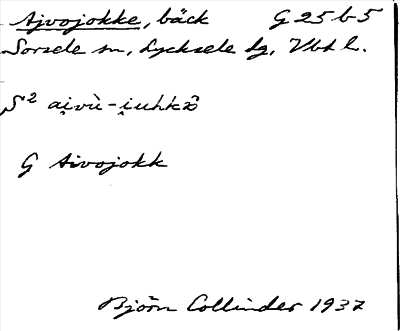 Ajvojokke, bäck G 25 b 5
Sorsele sn, Lycksele lg, Vbt l.
S² ai̯vù-i̯uhkɔ̂
G Aivojokk
Björn Collinder 1937